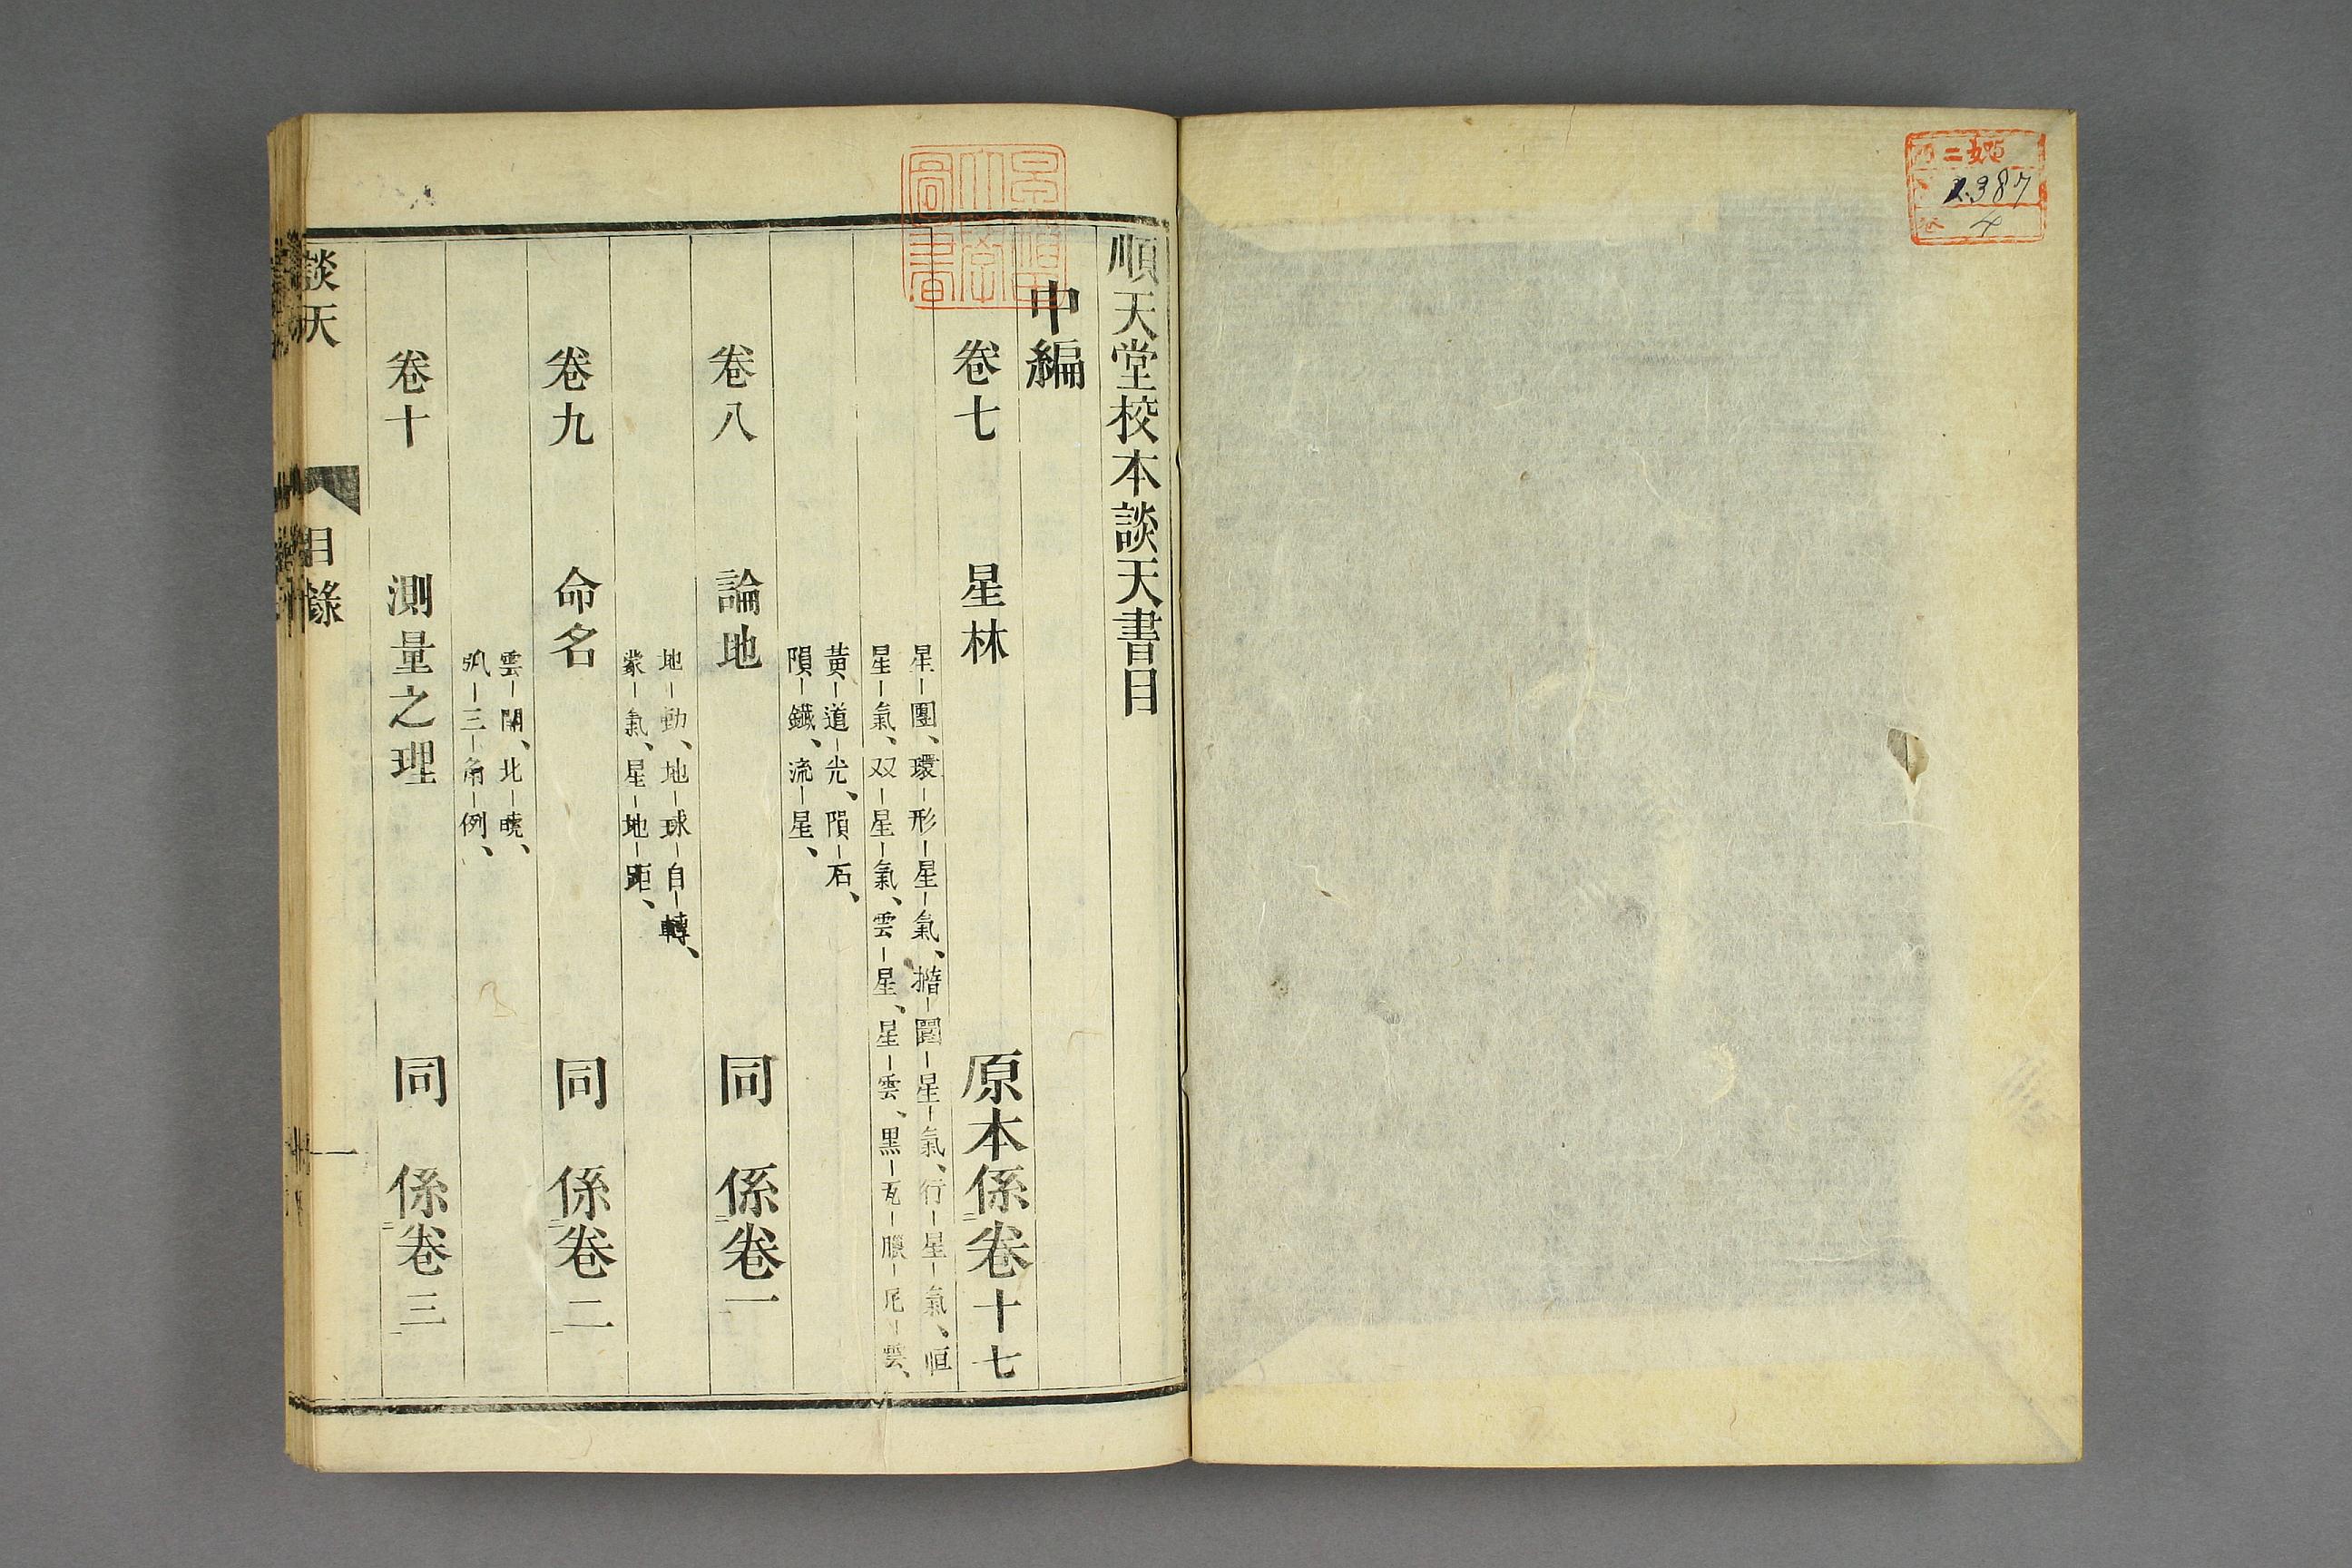 2387
4
順天堂校本談天書目
中編
卷七 星林 原本係卷十七
星−團、環−形−星−氣、揩−圜−星−氣、行−星−氣、恒
星−氣、双−星−氣、雲−星、星−雲、黒−瓦−臘−尼−雲、
黄−道−光、隕−石、
隕−鐵、流−星、
卷八 論地 同 係卷一
地−動、地−球−自−轉、
蒙−氣、星−地−距、
卷九 命名 同 係卷二
雲−閙、北−曉、
弧−三−角−例、
卷十 測量之理 同 係卷三
談天 目錄 一